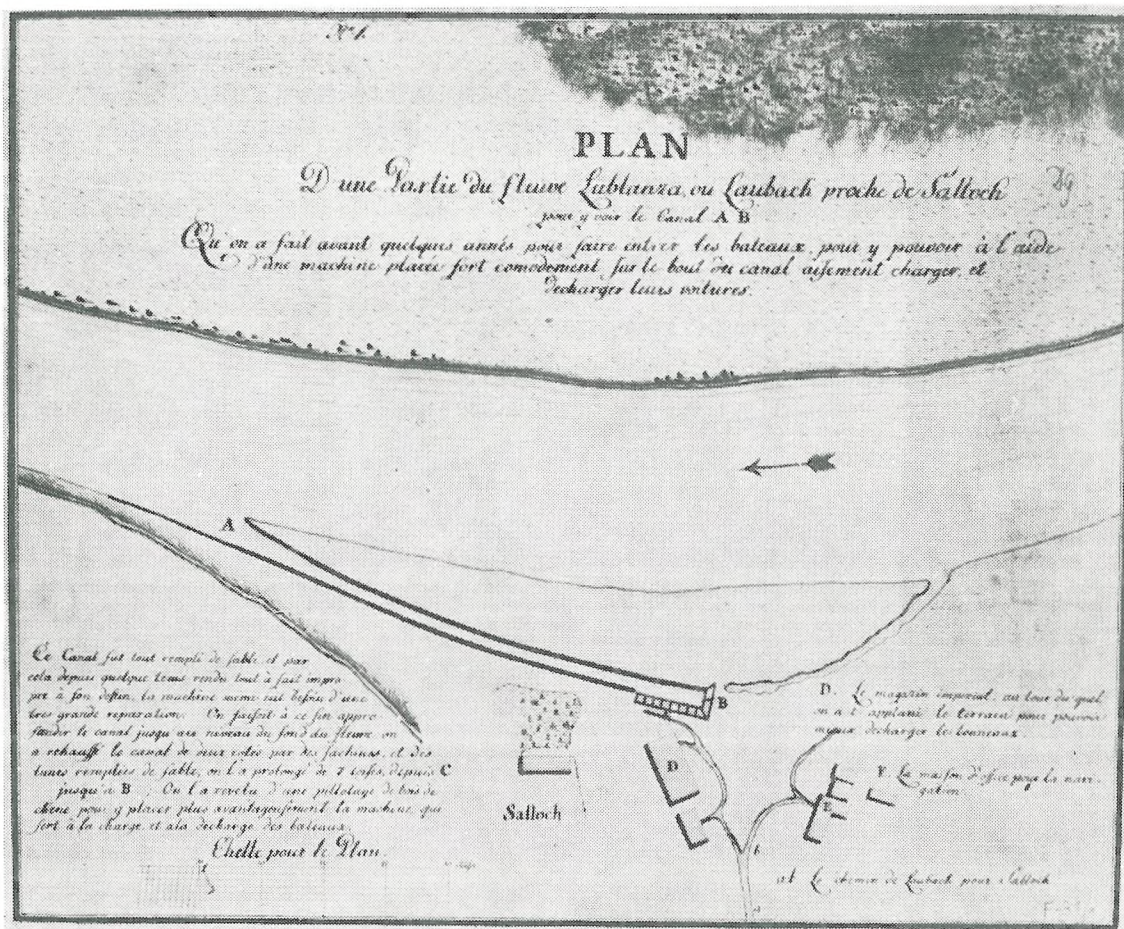 Nº 1.
PLAN
D'une Partie du fleuve Lublanza, ou Laubach proche de Salloch
pour y voir le Canal A B
Qu'on a fait avant quelques annés pour faire entrer les bateaux, pour y pouvoir à l'aide
d'une machine placée fort comodement sur le bout du canal aisement charger, et
decharger leurs voitures.
A
B
Le Canal fut tout rempli de sable, et par
cela depuis quelque tems rendu tout à fait impro
pre à son destin, la machine meme eut besoin d'une
tres grande reparation. On faisoit à ce fin appro
fonder le canal jusqu'au niveau du fond du fleuve on
a rehaussé le canal de deux cotés par des fachines, et des
remplies de sable, on l'a prolongé de 7 toises, depuis C
jusqu'à B ; On l'a revetu d'une pillotage de bois de
chêne pour y placer plus avantageusement la machine, qui
sert à la charge, et à la decharge des bateaux.
Echelle pour le Plan.
Salloch
D
E
b
D. Le magazin imperial, au tour du quel
on a applani le terrain pour pouvoir
mieux decharger le tonneaux.
La maison d'office pour la navi-
gation.
Le chemin de Laubach pour Salloch